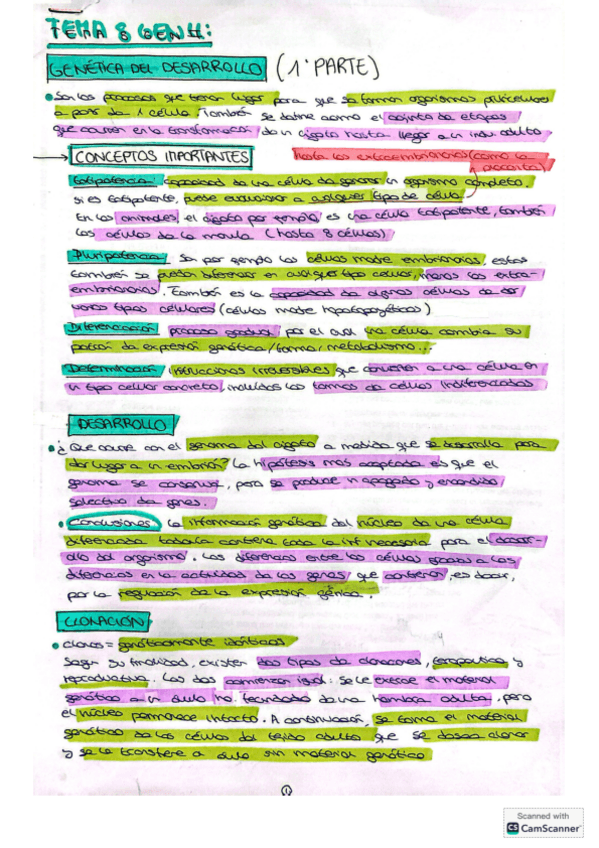 TEMA 8 GEN II:
GENÉTICA DEL DESARROLLO (1ª PARTE)
Son los procesos que tienen lugar para que se forman organismos pluricelulares
a partir de 1 célula. También se define como el conjunto de etapas
que ocurren en la transformación de un cigoto hasta llegar a un indiv. adulto
CONCEPTOS IMPORTANTES
hasta los extraembrionarios (como la
placenta)
Totipotencia: capacidad de una célula de generar un organismo completo.
Si es totipotente, puede evolucionar a cualquier tipo de célula
En los animales, el cigoto por ejemplo es una célula totipotente, también
las células de la mórula (hasta 8 células)
Pluripotencia: por ejemplo las células madre embrionarias, estas
también se pueden diferenciar en cualquier tipo celular, menos los extra-
embrionarios. También es la capacidad de algunas células de dar
varios tipos celulares (células madre hematopoyéticas)
Diferenciación: proceso gradual por el cual una célula cambia su
patrón de expresión genética/forma, metabolismo...
Determinación: instrucciones irreversibles que convierten a una célula en
un tipo celular concreto, incluidos las formas de células indiferenciadas
DESARROLLO
¿Qué ocurre con el genoma del cigoto a medida que se desarrolla para
dar lugar a un embrión? La hipótesis más aceptada es que el
genoma se conserva, pero se produce un apagado y encendido
selectivo de genes.
Conclusiones: la información genética del núcleo de una célula
diferenciada todavía contiene toda la inf necesaria para el desarro-
llo del organismo. Las diferencias entre las células a las
diferencias en la actividad de los genes que contienen, es decir,
por la regulación de la expresión génica.
CLONACIÓN
Clones = genéticamente idénticos
Según su finalidad, existen dos tipos de clonaciones, terapéutica y
reproductiva. Las dos comienzan igual: se le extrae el material
genético a un óvulo no fecundado de una hembra adulta, pero
el núcleo permanece intacto. A continuación, se toma el material
genético de las células del tejido adulto que se desea clonar
y se le transfiere a óvulo sin material genético
1
Scanned with
CS CamScanner